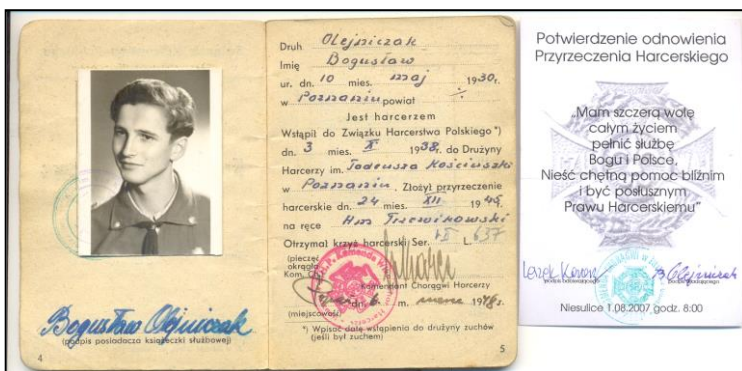 Bogusław Olejniczak
(podpis posiadacza książeczki służbowej)
4
Druh Olejniczak
Imię Bogusław
ur. dn. 10 mies. maj 1930r.
w Poznaniu powiat ÷
Jest harcerzem
Wstąpił do Związku Harcerstwa Polskiego*)
dn. 3 mies. X 1938r. do Drużyny
Harcerzy im. Tadeusza Kościuszki
w Poznaniu. Złożył przyrzeczenie
harcerskie dn. 24 mies. XII 1945
na ręce Hm
Otrzymał krzyż harcerski Ser. VII L. 637
(pieczęć
okrągła
Kom.
Komendant Chorągwi Harcerzy
dn. 6 m. marca 1948r.
(miejscowość)
*) Wpisać datę wstąpienia do drużyny zuchów
(jeśli był zuchem)
5
Potwierdzenie odnowienia
Przyrzeczenia Harcerskiego
„Mam szczerą wolę
całym życiem
pełnić służbę
Bogu i Polsce,
Nieść chętną pomoc bliźnim
i być posłusznym
Prawu Harcerskiemu"
Leszek B Olejniczak
Niesulice 1.08.2007 godz. 8:00